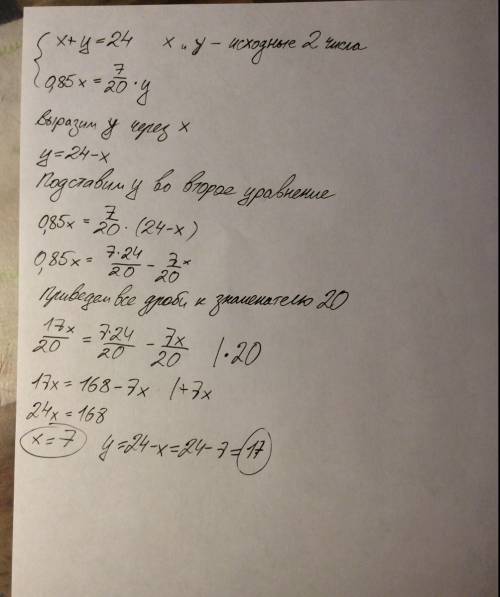 x+y=24 x и y – исходные 2 числа
0,85x = 7/20 · y
Выразим y через x
y=24-x
Подставим y во второе уравнение
0,85x = 7/20 · (24-x)
0,85x = 7·24/20 - 7x/20
Приведем все дроби к знаменателю 20
17x/20 = 7·24/20 - 7x/20 |·20
17x = 168-7x |+7x
24x = 168
x=7 y=24-x=24-7=17